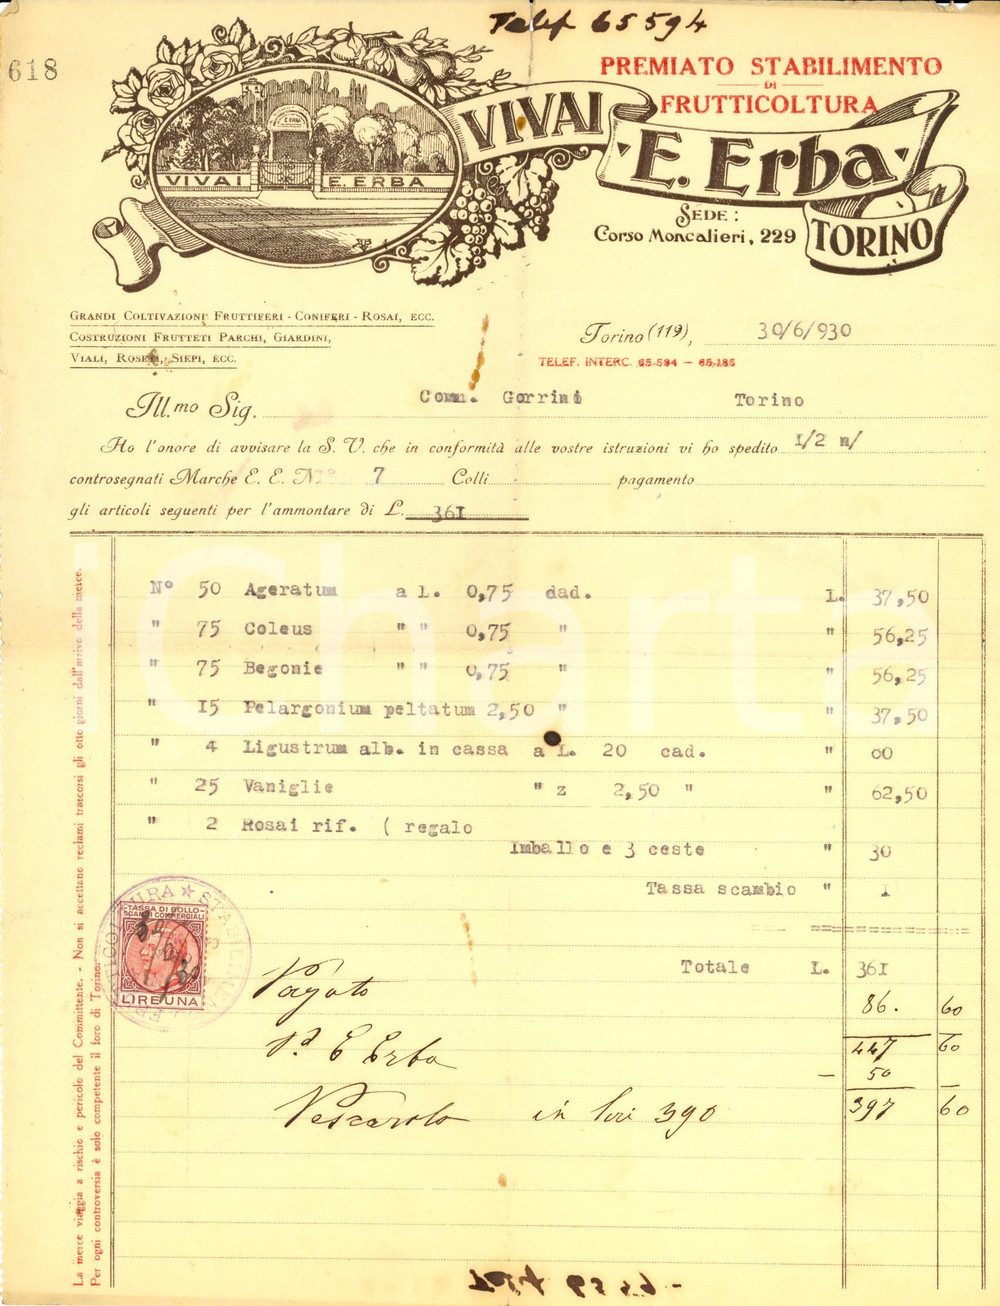 Telef 65594
618
PREMIATO STABILIMENTO
DI
FRUTTICOLTURA
VIVAI
E. Erba
TORINO
E. ERBA
VIVAI E. ERBA
SEDE:
Corso Moncalieri, 229
GRANDI COLTIVAZIONI FRUTTIFERI - CONIFERI - ROSAI, ECC.
COSTRUZIONI FRUTTETI PARCHI, GIARDINI,
VIALI, ROSETI, SIEPI, ECC.
Torino (119), 30/6/930
TELEF. INTERC. 65-594 — 65-185
Ill.mo Sig. Comm. Gorrini Torino
Ho l'onore di avvisare la S. V. che in conformità alle vostre istruzioni vi ho spedito 1/2 m/
controsegnati Marche E. E. N.ri 7 Colli pagamento
gli articoli seguenti per l'ammontare di L. 361
N° 50 Ageratum a L. 0,75 dad. L. 37,50
" 75 Coleus " " 0,75 " " 56,25
" 75 Begonie " " 0,75 " " 56,25
" 15 Pelargonium peltatum 2,50 " " 37,50
" 4 Ligustrum alb. in cassa a L. 20 cad. " 00
" 25 Vaniglie " z 2,50 " " 62,50
" 2 Rosai rif. ( regalo
Imballo e 3 ceste " 30
Tassa scambio " 1
Totale L. 361
86. 60
447 60
— 50 —
397 60
Pagato
P.d E Erba
Pescarolo in lire 390
TASSA DI BOLLO
SCAMBI COMMERCIALI
LIRE UNA
La merce viaggia a rischio e pericolo del Committente. - Non si accettano reclami trascorsi gli otto giorni dall'arrivo della merce.
Per ogni controversia è solo competente il foro di Torino.
iCharta